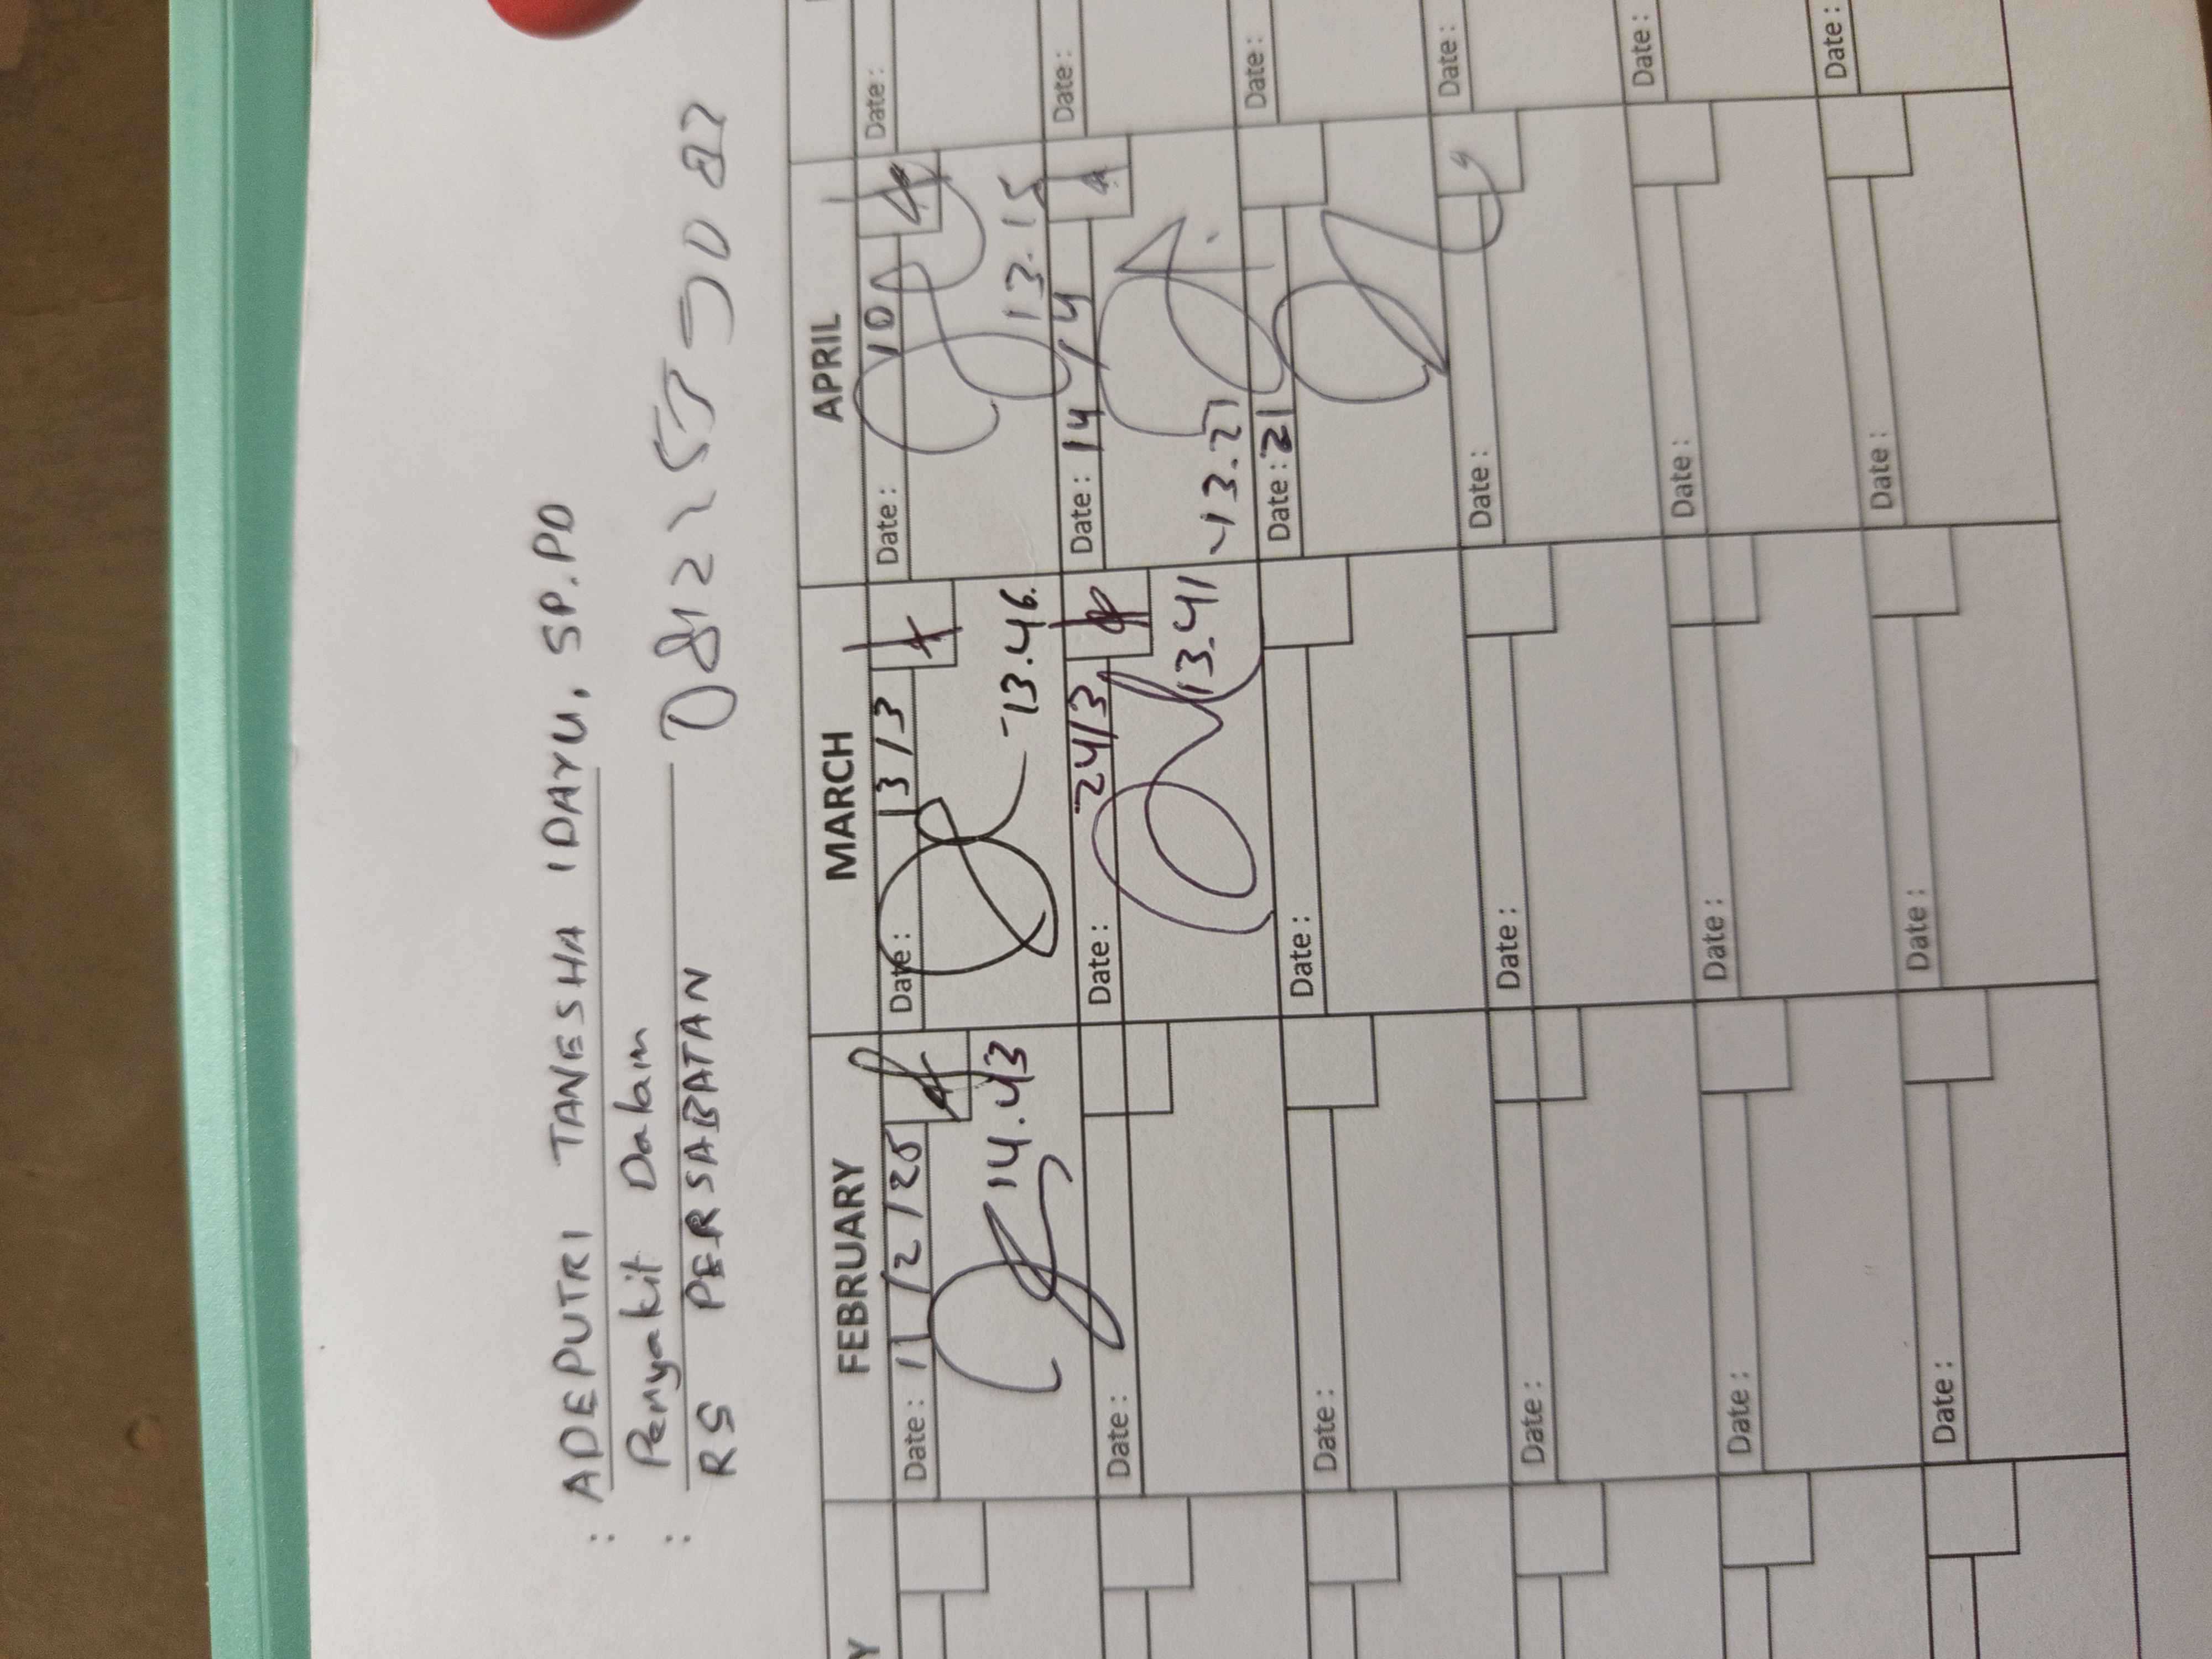 : ADEPUTRI TANESHA IDAYU, SP.PD
Penyakit Dalam
: RS PERSAHABATAN
FEBRUARY MARCH APRIL
Date : 11/2/25 Date : 13/3 Date : 10 Date :
14.43 13.46. 13.15
Date : Date : 24/3 Date : 14/4 Date :
13.41 13.21
Date : Date : Date : 21 Date :
Date : Date : Date : Date :
Date : Date : Date : Date :
Date : Date : Date : Date :